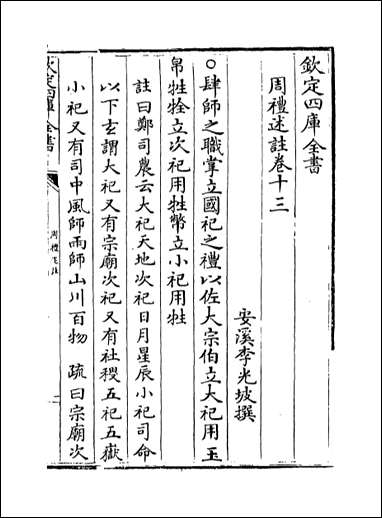 欽定四庫全書
周禮述註卷十三
安溪李光坡撰
○肆師之職掌立國祀之禮以佐大宗伯立大祀用玉
帛牲牷立次祀用牲幣立小祀用牲
註曰鄭司農云大祀天地次祀日月星辰小祀司命
以下玄謂大祀又有宗廟次祀又有社稷五祀五嶽
小祀又有司中風師雨師山川百物 疏曰宗廟次
欽定四庫全書
周禮述註